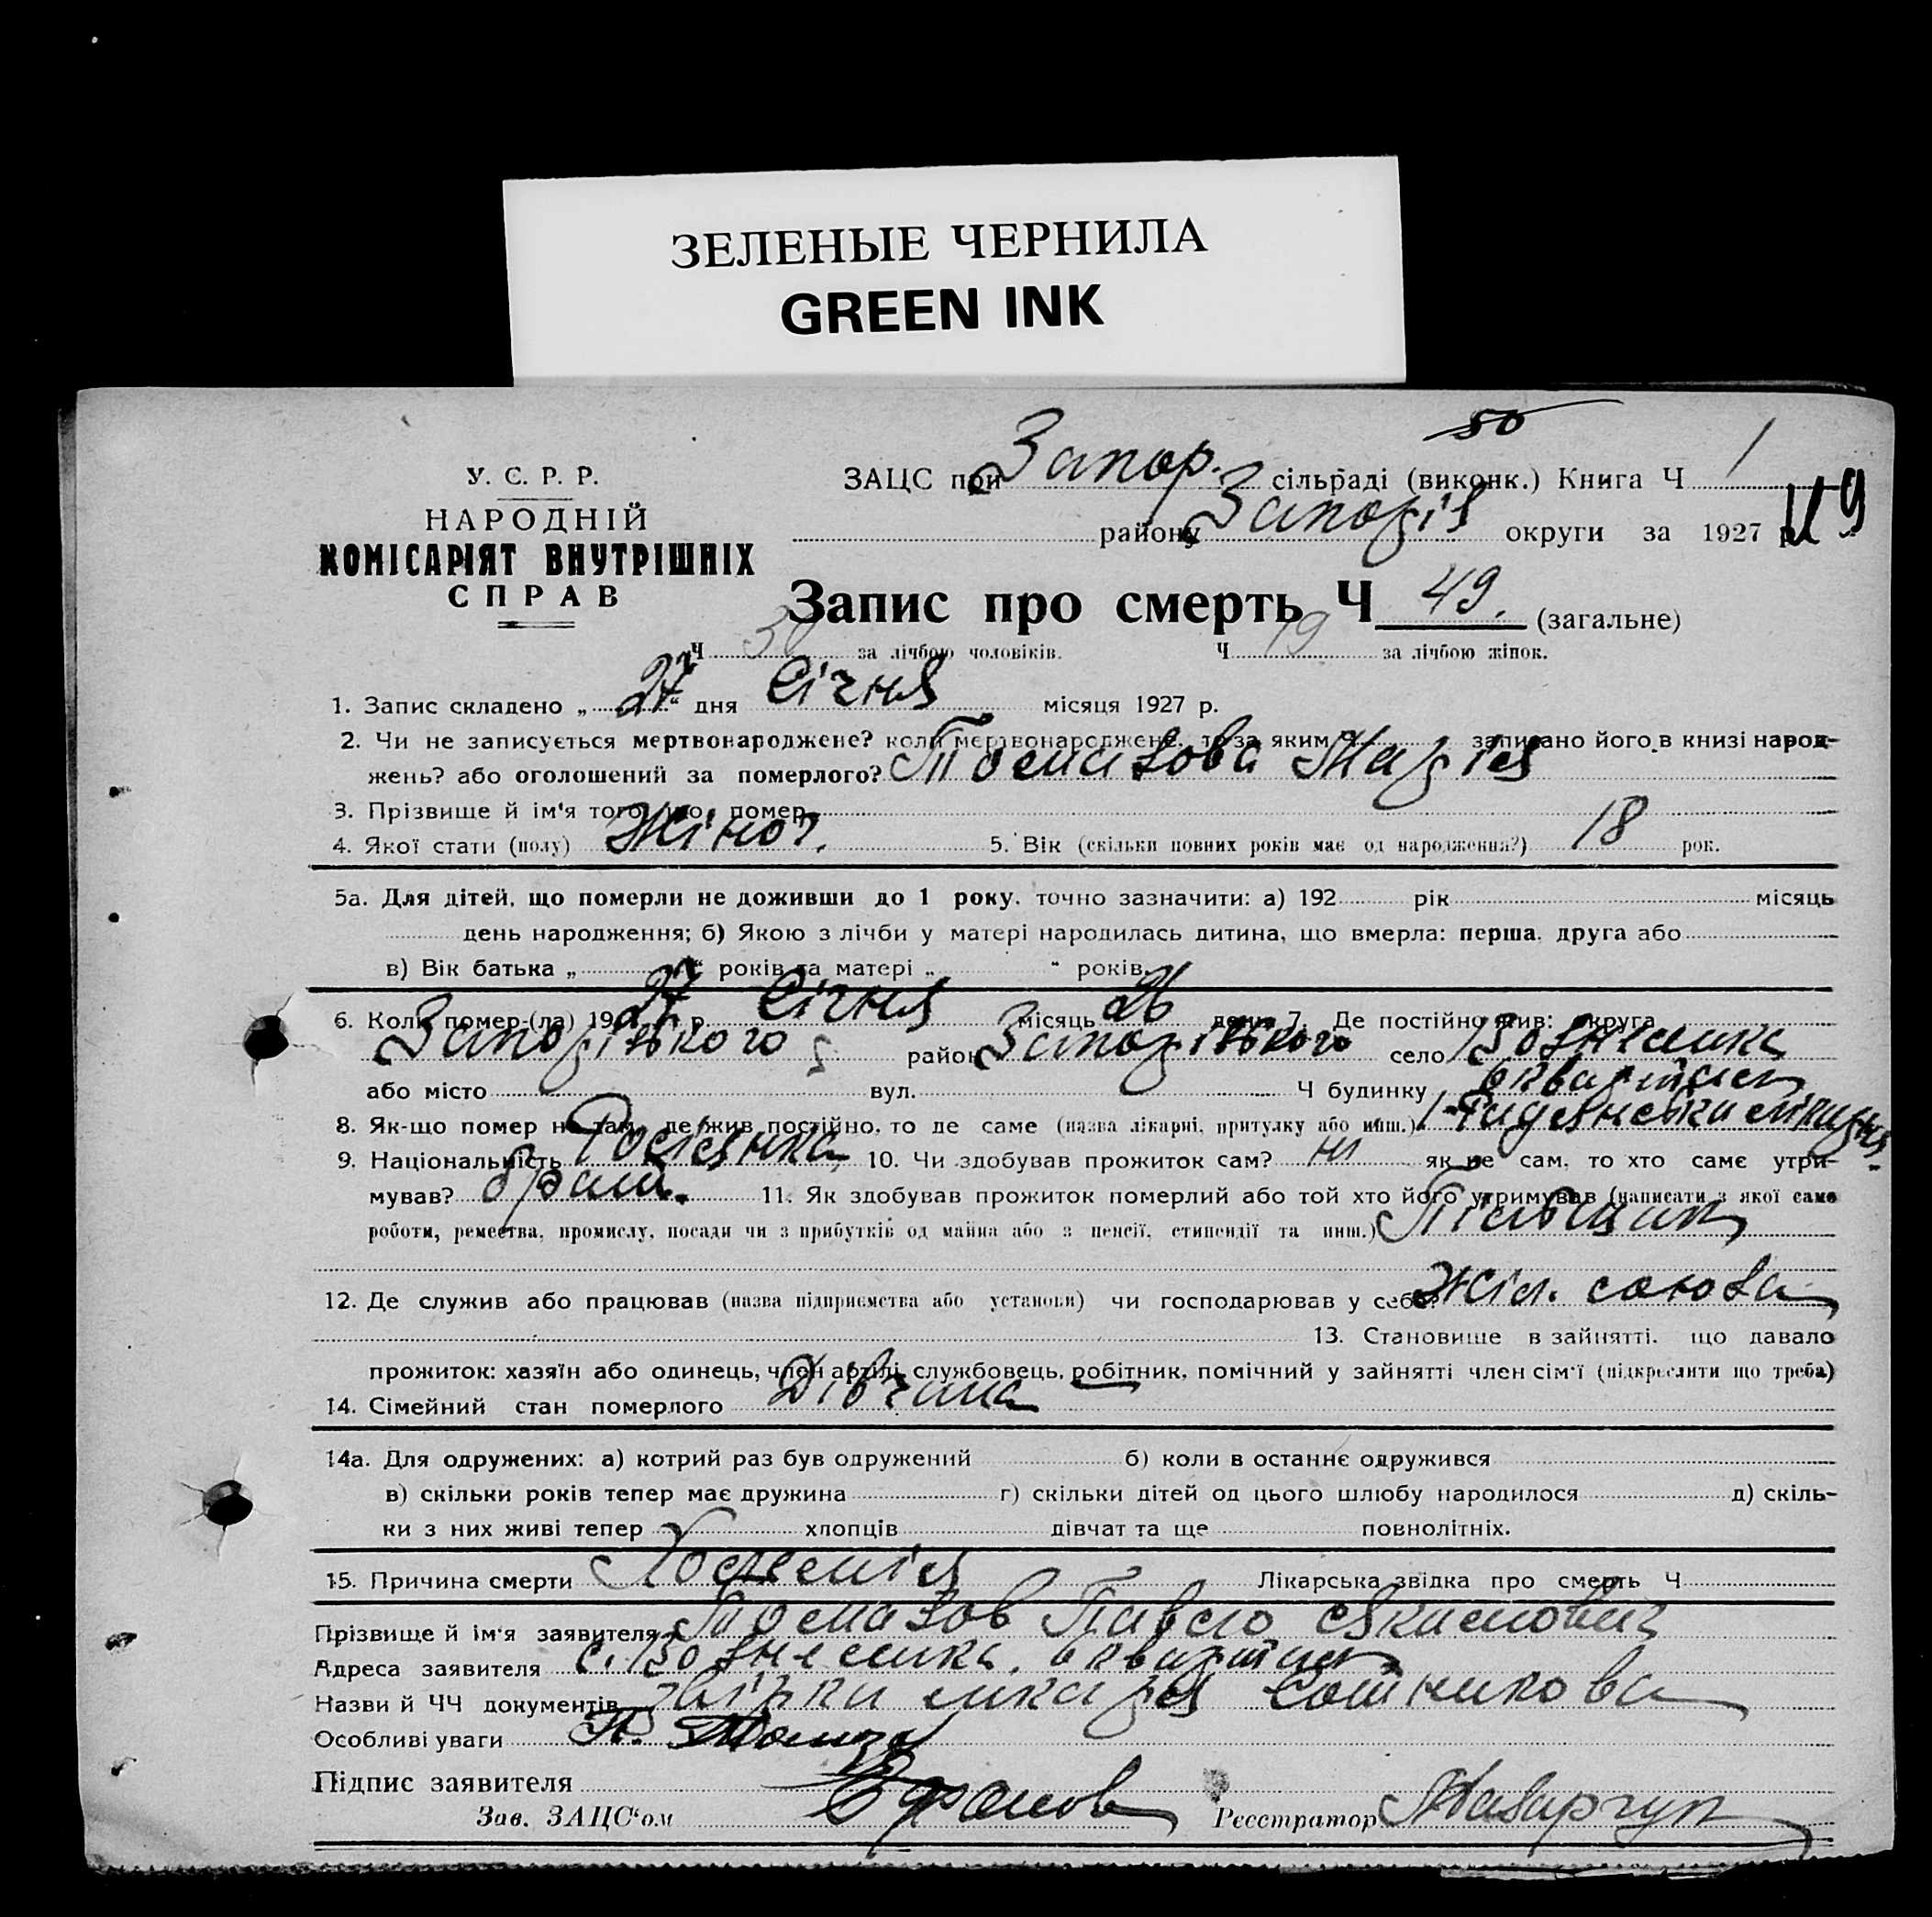 ЗЕЛЕНЫЕ ЧЕРНИЛА
GREEN INK
50
У. С. Р. Р.
НАРОДНІЙ
КОМІСАРІЯТ ВНУТРІШНІХ
СПРАВ
ЗАЦС при Запор. сільраді (виконк.) Книга Ч 1
району Запоріз округи за 1927 р.
49
Запис про смерть Ч 49. (загальне)
Ч 30 за лічбою чоловіків. Ч 19 за лічбою жінок.
1. Запис складено „ 27 “ дня Січня місяця 1927 р.
2. Чи не записується мертвонароджене? коли мертвонароджене, то за яким Ч записано його в книзі народ-
жень? або оголошений за померлого? Томазова Марія
3. Прізвище й ім'я того, що помер
4. Якої стати (полу) Жіноч. 5. Вік (скільки повних років має од народження?) 18 рок.
5а. Для дітей, що померли не доживши до 1 року, точно зазначити: а) 192 рік місяць
день народження; б) Якою з лічби у матері народилась дитина, що вмерла: перша, друга або
в) Вік батька „ “ років та матері „ “ років.
6. Коли помер-(ла) 1927 р. Січня місяць 26 день 7. Де постійно жив: округа
Запорізького район Запорізького село Вознесенка
або місто вул. Ч будинку 6 квартал
8. Як-що помер не там, де жив постійно, то де саме (назва лікарні, притулку або инш.) 1 Радянська лікарня.
9. Національність Росіянка, 10. Чи здобував прожиток сам? ні як не сам, то хто саме утри-
мував? брат. 11. Як здобував прожиток померлий або той хто його утримував (написати з якої саме
роботи, ремества, промислу, посади чи з прибутків од майна або з пенсії, стипендії та инш.)
12. Де служив або працював (назва підприємства або установи) чи господарював у себе? Жіл. союза
13. Становище в зайнятті, що давало
прожиток: хазяїн або одинець, член артілі, службовець, робітник, помічний у зайнятті член сім'ї (підкреслити що треба)
14. Сімейний стан померлого Дівчина
14а. Для одружених: а) котрий раз був одружений б) коли в останнє одружився
в) скільки років тепер має дружина г) скільки дітей од цього шлюбу народилося д) скіль-
ки з них живі тепер хлопців дівчат та ще повнолітніх.
15. Причина смерти Лікарська звідка про смерть Ч
Прізвище й ім'я заявителя Томазов Павло Якимович
Адреса заявителя с. Вознесенка, 6 квартал
Назви й ЧЧ документів звідка лікаря Сотникова
Особливі уваги
Підпис заявителя
Зав. ЗАЦС'ом Реєстратор